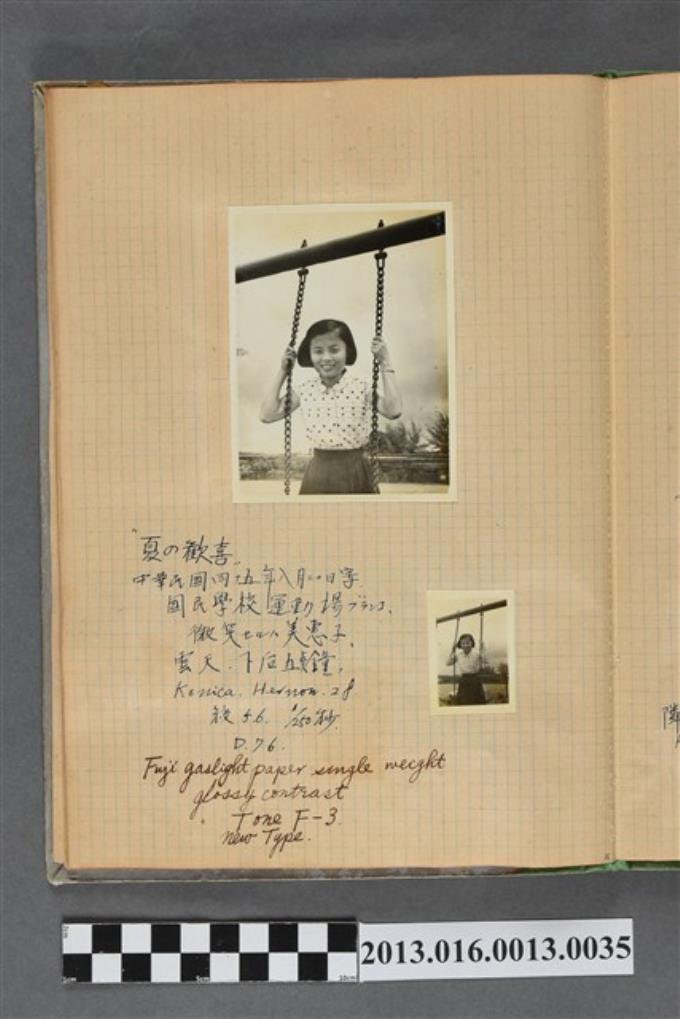 "夏の歓喜"
中華民國四十五年八月二十日寫
國民學校運動場ブランコ、
微笑せる 美惠子、
雲天、下后五點鐘、
Konica. Hexnon. 2.8
絞 5.6. 1/250 秒.
D.76.
Fuji gaslight paper single weight
glossy contrast
Tone F-3.
new Type.
隣
2013.016.0013.0035